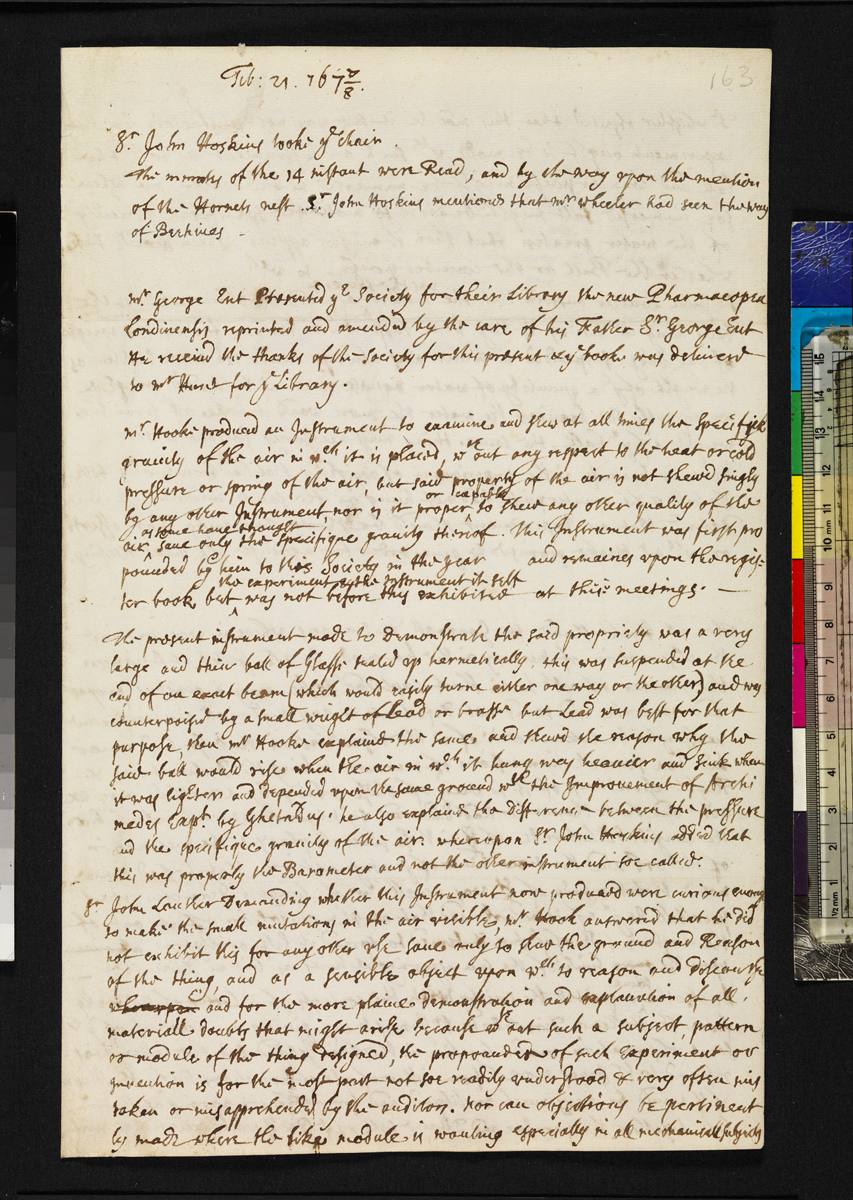 163
Feb: 21. 167 7/8.
Sr John Hoskins tooke ye chair.
The minutes of the 14 instant were Read, and by the way upon the mention
of the Hornets nest Sr John Hoskins mentioned that mr wheeler had seen the way
of Beehives -
mr George Ent Presented ye Society for their Library the new Pharmacopea
Londinensis reprinted and amended by the care of his Father Sr George Ent
He received the thanks of the Society for this present & ye booke was delivered
to mr Hunt for ye Library.
mr. Hooke produced an Instrument to examine and shew at all times the specifick
gravity of the air in wch it is placed, wthout any respect to the heat or cold
pressure or spring of the air, but said property of the air is not shewd singly
by any other Instrument, nor is it proper or capable to shew any other quality of the
air, as some have thought save only the specifique gravity thereof. This Instrument was first pro
pounded by him to this Society in the year and remaines upon the regis-
ter book, but the experiment or the instrument it self was not before this exhibited at these meetings. —
The present instrument made to demonstrate the said propriety was a very
large and thin ball of Glasse sealed up hermetically, this was suspended at the
end of an exact beam (which would easily turne either one way or the other) and was
counterpoised by a small weight of Lead or brasse but Lead was best for that
purpose, then mr Hooke explained the same and shewd the reason why the
said ball would rise when the air in wch it hung was heavier and sink when
it was lighter and depended upon the same ground wth the Improvement of Archi
medes Expt. by Ghetaldus. he also explaind the Difference between the pressure
and the specifique gravity of the air. whereupon Sr John Hoskins added that
this was properly the Barometer and not the other instrument soe called.
Sr John Lowther Demanding whether this Instrument now produced were curious enough
to make the small mutations in the air visible, mr. Hook answered that he did
not exhibit this for any other use save only to shew the ground and Reason
of the thing, and as a sensible object upon wch to reason and discourse
and for the more plaine demonstration and explanation of all
materiall doubts that might arise because wthout such a subject, pattern
or module of the thing designed, the propounder of such Experiment or
invention is for the most part not soe readily understood & very often mis
taken or misapprehended by the auditors. nor can objections be pertinent
ly made where the like module is wanting especially in all mechanicall subjects